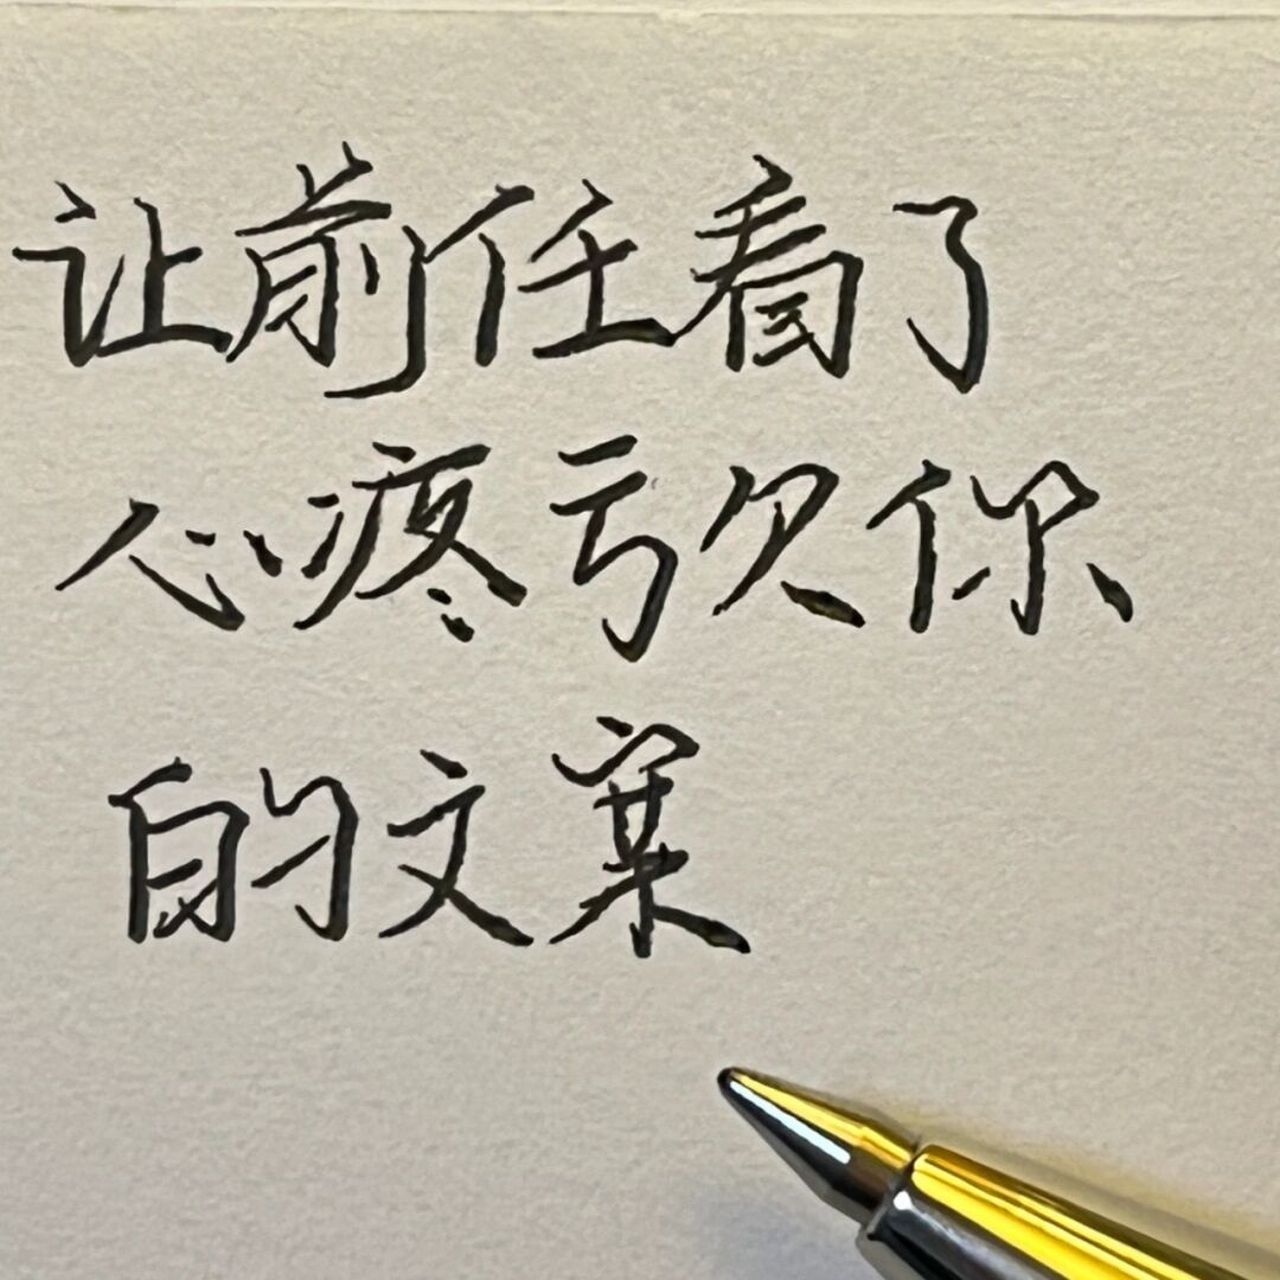 让前任看了
心疼亏欠你
的文案